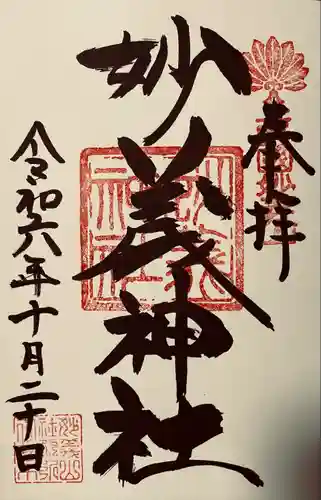 奉拝
妙義神社
令和六年十月二十日